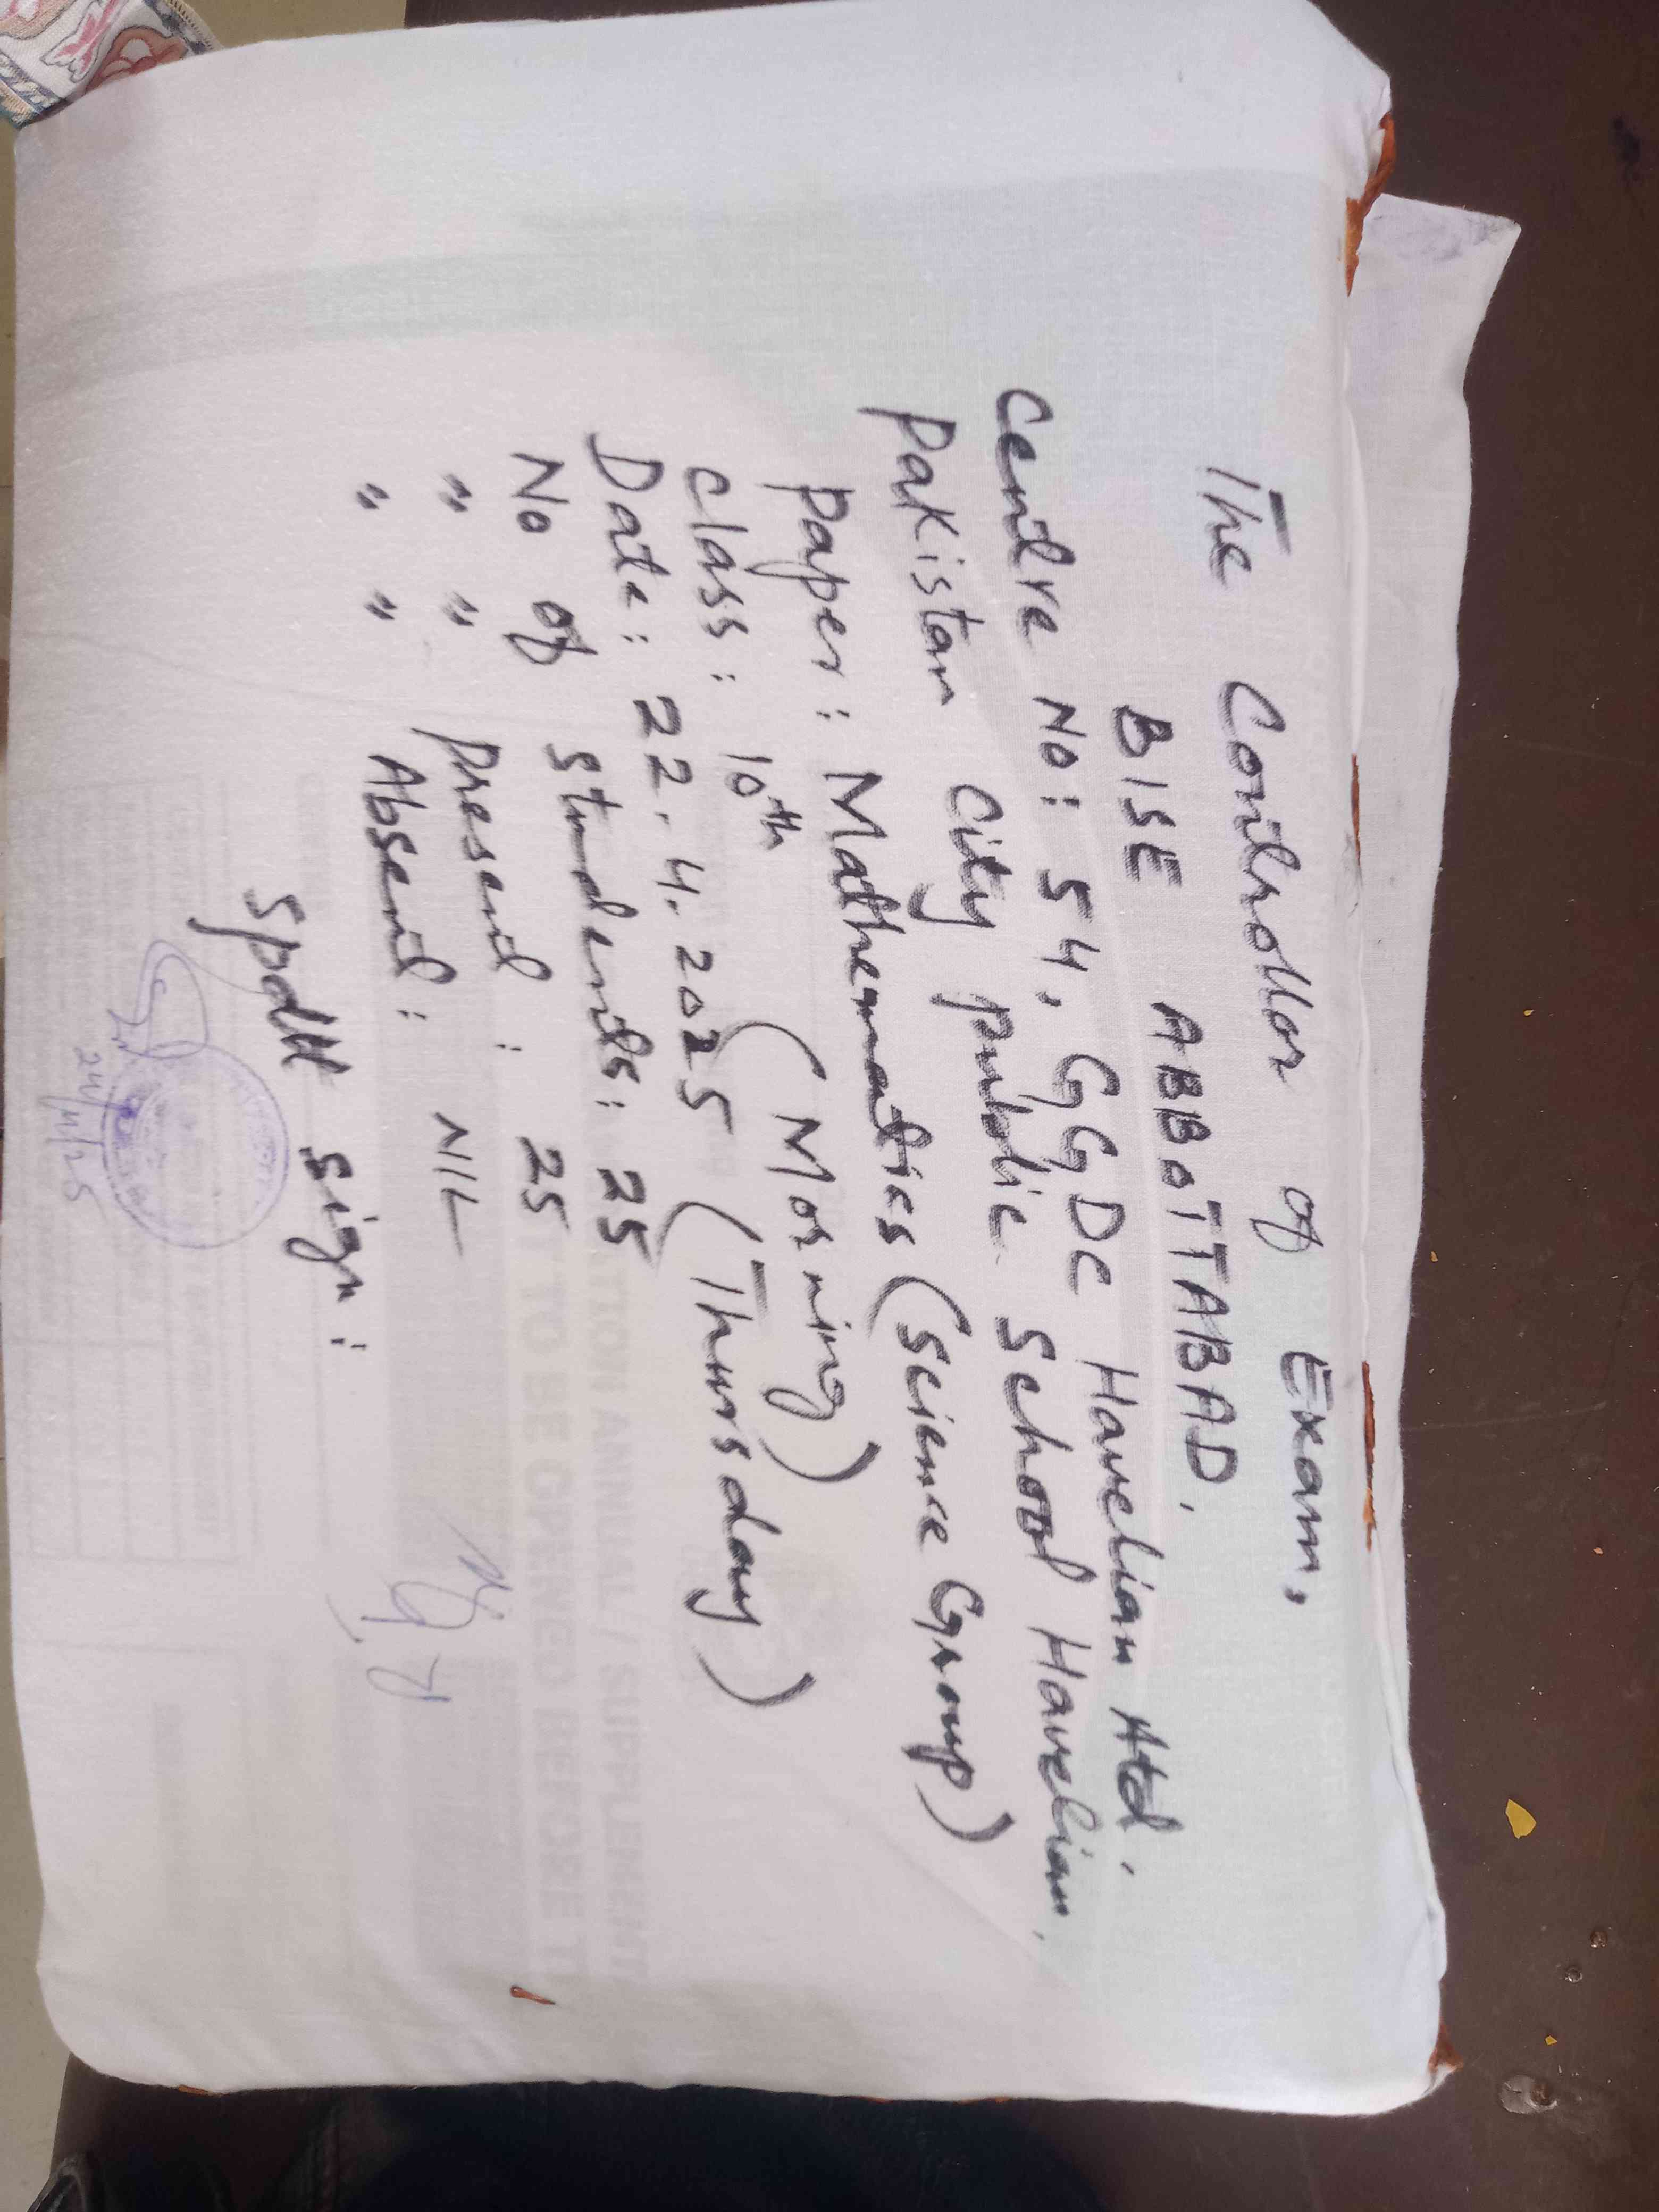 The Controller of Exam,
BISE ABBOTTABAD.
Centre No: 54, GGDC Havelian Atd.
Pakistan City public School Havelian,
Paper: Mathematics (Science Group)
Class: 10th (Morning)
Date: 22.4.2025 (Thursday)
No of Students: 25
" " Present : 25
" " Absent: NIL
Spdtt sign:
24/4/25
ATION ANNUAL / SUPPLEMENT
T TO BE OPENED BEFORE T